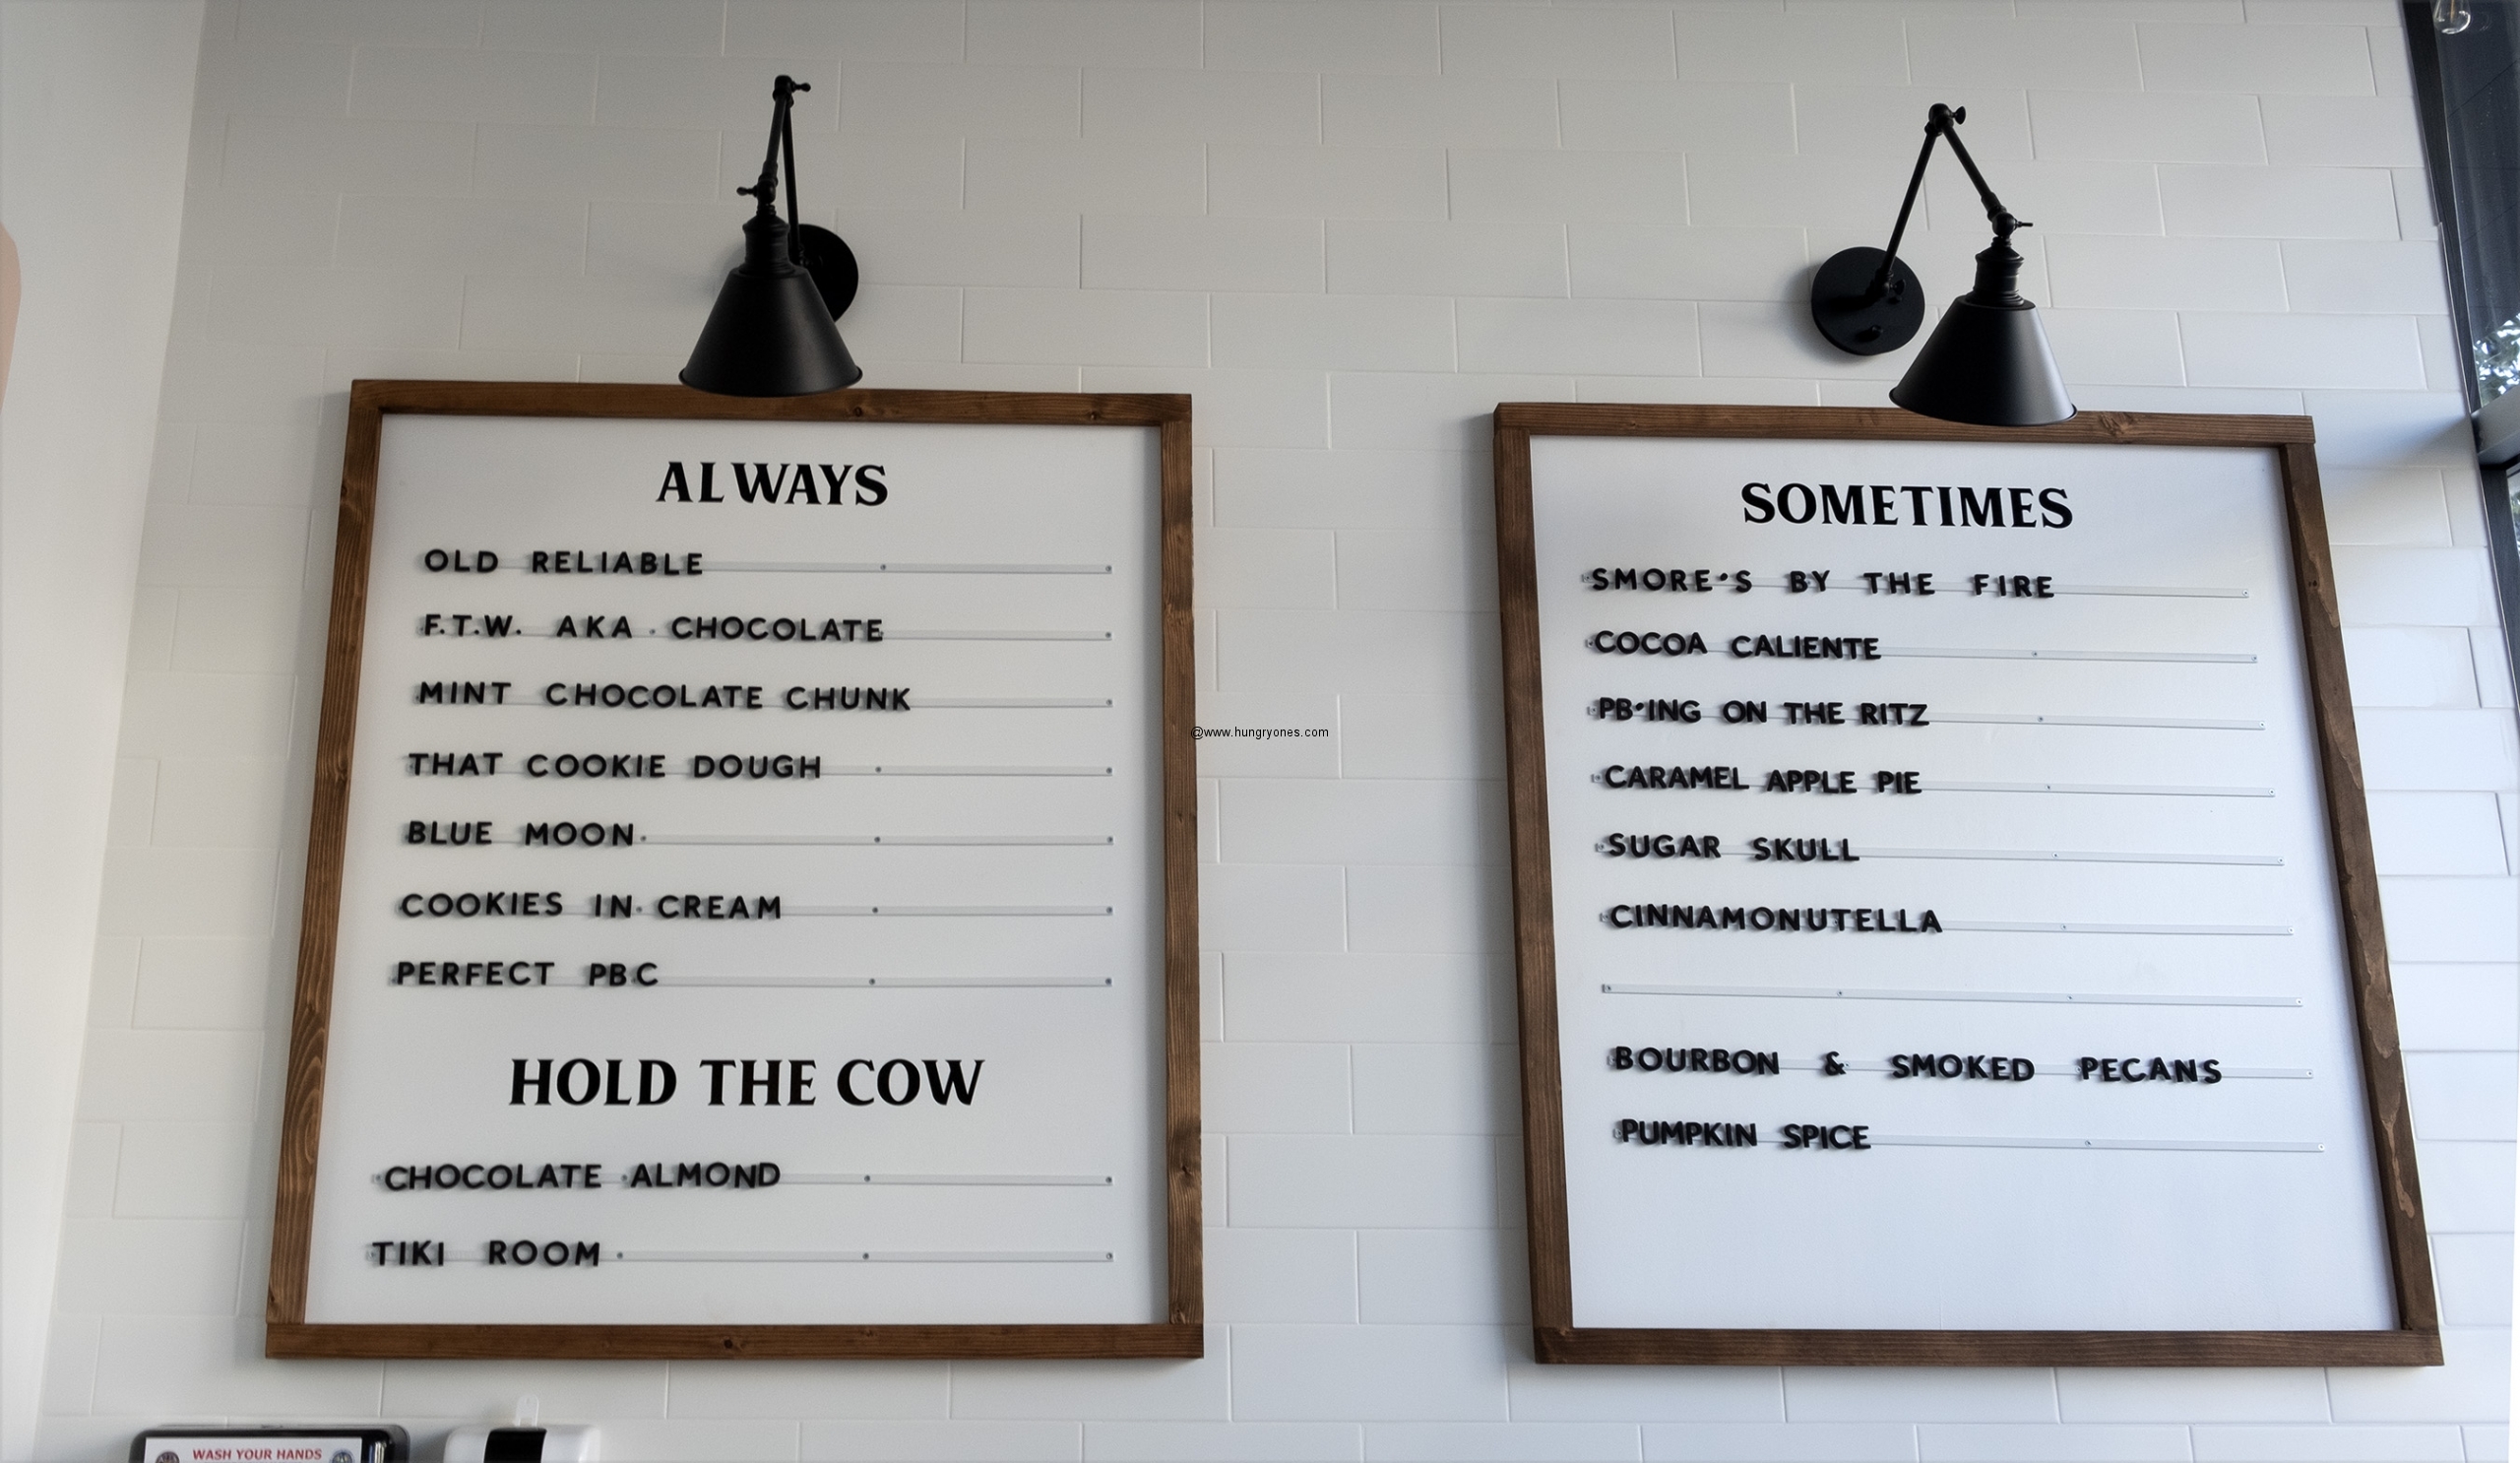 ALWAYS
OLD RELIABLE
F.T.W. AKA CHOCOLATE
MINT CHOCOLATE CHUNK
THAT COOKIE DOUGH
BLUE MOON
COOKIES IN CREAM
PERFECT PBC
HOLD THE COW
CHOCOLATE ALMOND
TIKI ROOM
SOMETIMES
SMORE'S BY THE FIRE
COCOA CALIENTE
PB'ING ON THE RITZ
CARAMEL APPLE PIE
SUGAR SKULL
CINNAMONUTELLA
BOURBON & SMOKED PECANS
PUMPKIN SPICE
@www.hungryones.com
WASH YOUR HANDS